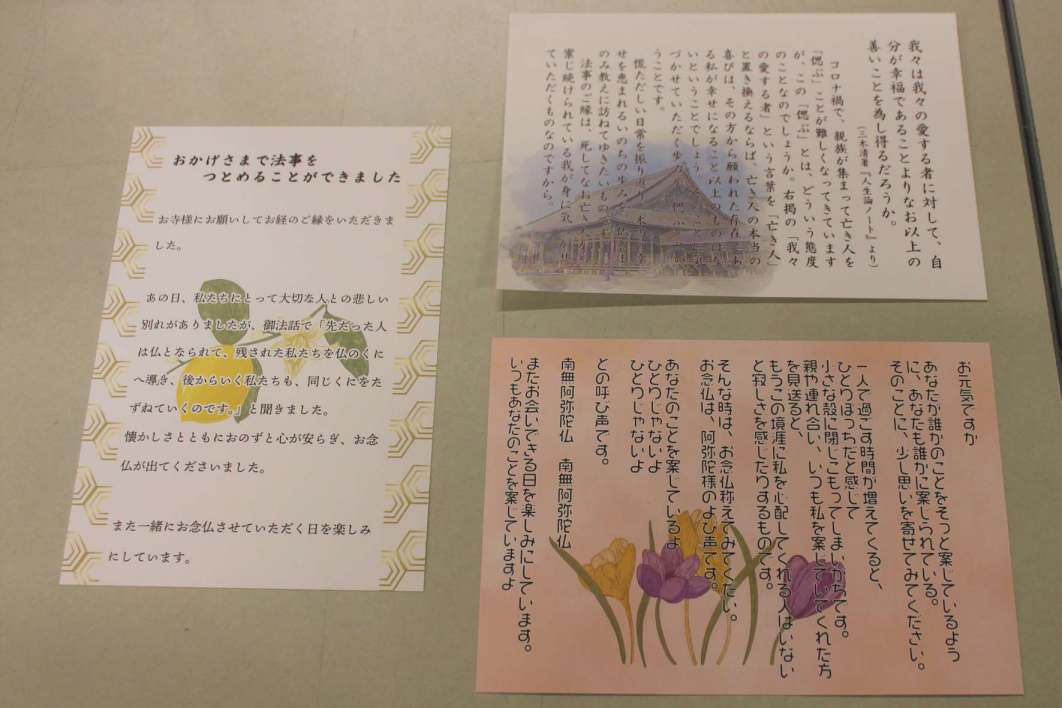 おかげさまで法事を
つとめることができました
お寺様にお願いしてお経のご縁をいただきま
した。
あの日、私たちにとって大切な人との悲しい
別れがありましたが、御法話で「先だった人
は仏となられて、残された私たちを仏のくに
へ導き、後からいく私たちも、同じくにをた
ずねていくのです。」と聞きました。
懐かしさとともにおのずと心が安らぎ、お念
仏が出てくださいました。
また一緒にお念仏させていただく日を楽しみ
にしています。
我々は我々の愛する者に対して、自
分が幸福であることよりなお以上の
善いことを為し得るだろうか。
(三木清著『人生論ノート』より)
コロナ禍で、親族が集まって亡き人を
「偲ぶ」ことが難しくなってきています
が、この「偲ぶ」とは、どういう態度
のことなのでしょうか。右掲の「我々
の愛する者」という言葉を「亡き人」
と置き換えるならば、亡き人の本当の
喜びは、その方から願われた存在であ
る私が幸せになること以上のものはな
いということでしょう。そのことに気
づかせていただく歩みが「偲ぶ」とい
うことです。
慌ただしい日常を振り返り、本当の幸
せを恵まれるいのちの歩みを、仏さま
のみ教えに訪ねてゆきたいものです。
法事のご縁は、死してなお亡き人から
案じ続けられている我が身に気づかせ
ていただくものなのですから。
お元気ですか
あなたが誰かのことをそっと案じているよう
に、あなたも誰かに案じられている。
そのことに、少し思いを寄せてみてください。
一人で過ごす時間が増えてくると、
ひとりぼっちだと感じて
小さな殻に閉じこもってしまいがちです。
親や連れ合い、いつも私を案じていてくれた方
を見送ると、
もうこの境涯に私を心配してくれる人はいない
と寂しさを感じたりするものです。
そんな時は、お念仏称えてみてください。
お念仏は、阿弥陀様のよび声です。
あなたのことを案じているよ
ひとりじゃないよ
ひとりじゃないよ
との呼び声です。
南無阿弥陀仏 南無阿弥陀仏
またお会いできる日を楽しみにしています。
いつもあなたのことを案じていますよ